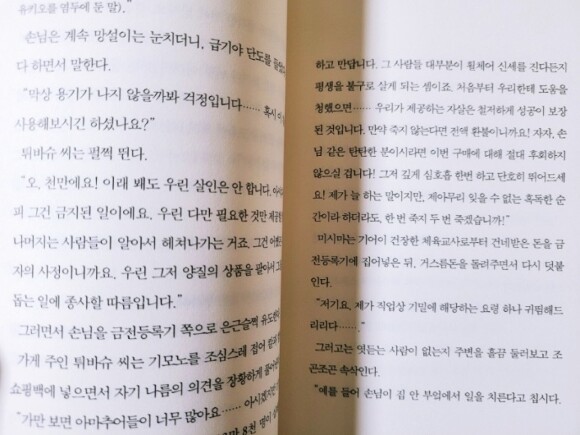 유키오를 염두에 둔 말)."
손님은 계속 망설이는 눈치더니, 급기야 단도를
다 하면서 말한다.
"막상 용기가 나지 않을까봐 걱정입니다…… 혹시
사용해보시긴 하셨나요?"
튀바슈 씨는 펄쩍 뛴다.
"오, 천만에요! 이래 봬도 우린 살인은 안 합니다.
피 그건 금지된 일이에요. 우린 다만 필요한 것만
나머지는 사람들이 알아서 헤쳐나가는 거죠. 그건
자의 사정이니까요. 우린 그저 양질의 상품을 팔아서
돕는 일에 종사할 따름입니다."
그러면서 손님을 금전등록기 쪽으로 은근슬쩍
가게 주인 튀바슈 씨는 기모노를 조심스레 접어
쇼핑백에 넣으면서 자기 나름의 의견을 장황하게
"가만 보면 아마추어들이 너무 많아요…… 아시겠지만
8천 명이
하고 만답니다. 그 사람들 대부분이 휠체어 신세를 진다든지
평생을 불구로 살게 되는 셈이죠. 처음부터 우리한테 도움을
청했으면…… 우리가 제공하는 자살은 철저하게 성공이 보장
된 것입니다. 만약 죽지 않는다면 전액 환불이니까요! 자자, 손
님 같은 탄탄한 분이시라면 이번 구매에 대해 절대 후회하지
않으실 겁니다! 그저 깊게 심호흡 한번 하고 단호히 뛰어드세
요! 제가 늘 하는 말이지만, 제아무리 잊을 수 없는 혹독한 순
간이라 하더라도, 한 번 죽지 두 번 죽겠습니까!"
미시마는 기어이 건장한 체육교사로부터 건네받은 돈을 금
전등록기에 집어넣은 뒤, 거스름돈을 돌려주면서 다시 덧붙
인다.
"저기요, 제가 직업상 기밀에 해당하는 요령 하나 귀띔해드
리리다……."
그러고는 엿듣는 사람이 없는지 주변을 흘끔 둘러보고 조
곤조곤 속삭인다.
"예를 들어 손님이 집 안 부엌에서 일을 치른다고 칩시다.